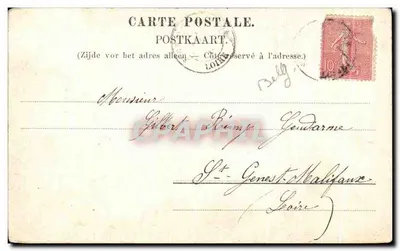 CARTE POSTALE.
POSTKAART.
(Zijde voor het adres alleen. — Côté réservé à l'adresse.)
LOIRE
10
Belg
Monsieur
Gilbert Rémy Gendarme
St. Genest-Malifaux
Loire